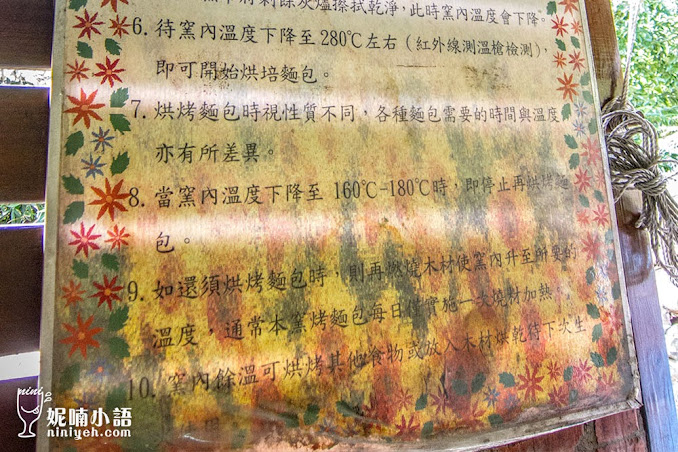 窯內將剩餘灰燼擦拭乾淨，此時窯內溫度會下降。
6. 待窯內溫度下降至280℃左右（紅外線測溫槍檢測），
即可開始烘培麵包。
7. 烘烤麵包時視性質不同，各種麵包需要的時間與溫度
亦有所差異。
8. 當窯內溫度下降至 160℃-180℃時，即停止再烘烤麵
包。
9. 如還須烘烤麵包時，則再燃燒木材使窯內升至所要的
溫度，通常本窯烤麵包每日僅實施一次燒材加熱。
10. 窯內餘溫可烘烤其他食物或放入木材烘乾待下次生
nini
妮喃小語
niniyeh.com